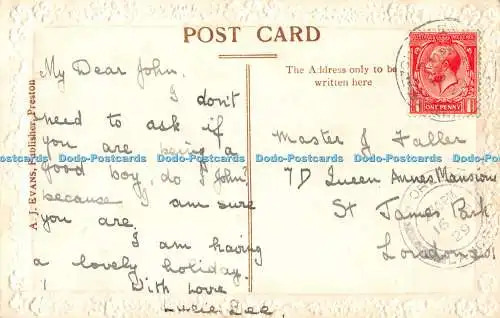 POST CARD
The Address only to be
written here
A. J. EVANS, Publisher, Preston
My Dear John,
I don't
need to ask if
you are being a
good boy, do I John?
because I am sure
you are.
I am having
a lovely holiday.
With love
Lucie Lee.
Master J. Faller
7D Queen Annes Mansions
St James Park
London
ONE PENNY
Dodo-Postcards Dodo-Postcards Dodo-Postcards Dodo-Postcards Dodo-Postcards